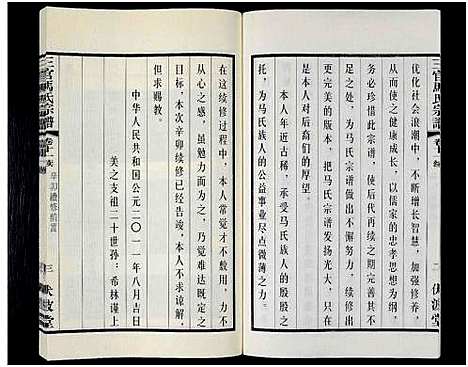 三官馬氏宗譜 卷十一 续 二 伏波堂
优化社会浪潮中，不断增长智慧，加强修养，
从而使之健康成长，以儒家的忠孝思想为纲，
珍惜此宗谱，后代再续之期完善其
做出不懈努力，续
更完美的版本，把马氏宗谱发扬光大，
是本人对后裔们的厚望。
本人年近古稀，承受马氏族人的殷殷之
托，为马氏族人的公益事业尽点微薄之力，
在这次续修过程中，本人常觉才不敷用，力不
从心之感，虽 当为之，乃觉难达既定
目标，本次辛卯续修已告竣，本人不求谅解，
但求赐教。
中华人民共和国公元二〇一一年八月吉日
美之支祖二十世孙：希林谨上
三官馬氏宗譜 卷十一 续 辛卯續修前言 三 伏波堂